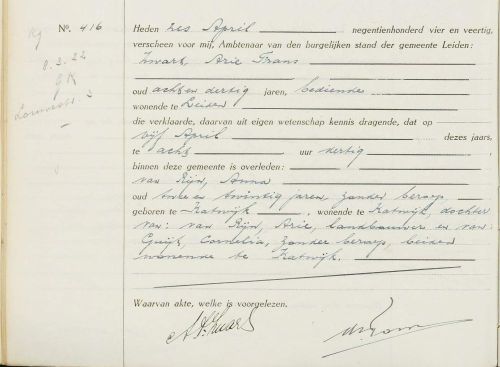 Nº. 416
Heden zes April negentienhonderd vier en veertig,
verscheen voor mij, Ambtenaar van den burgelijken stand der gemeente Leiden:
Zwart, Arie Frans
oud acht en dertig jaren, bediende
wonende te Leiden
die verklaarde, daarvan uit eigen wetenschap kennis dragende, dat op
vijf April dezes jaars,
te acht uur dertig
binnen deze gemeente is overleden:
van Rijn, Anna
oud twee en twintig jaren, zonder beroep,
geboren te Katwijk, wonende te Katwijk, dochter
van: van Rijn, Arie, landbouwer en van
Guijt, Cornelia, zonder beroep, beiden
wonende te Katwijk.
Waarvan akte, welke is voorgelezen.
A. F. Zwart